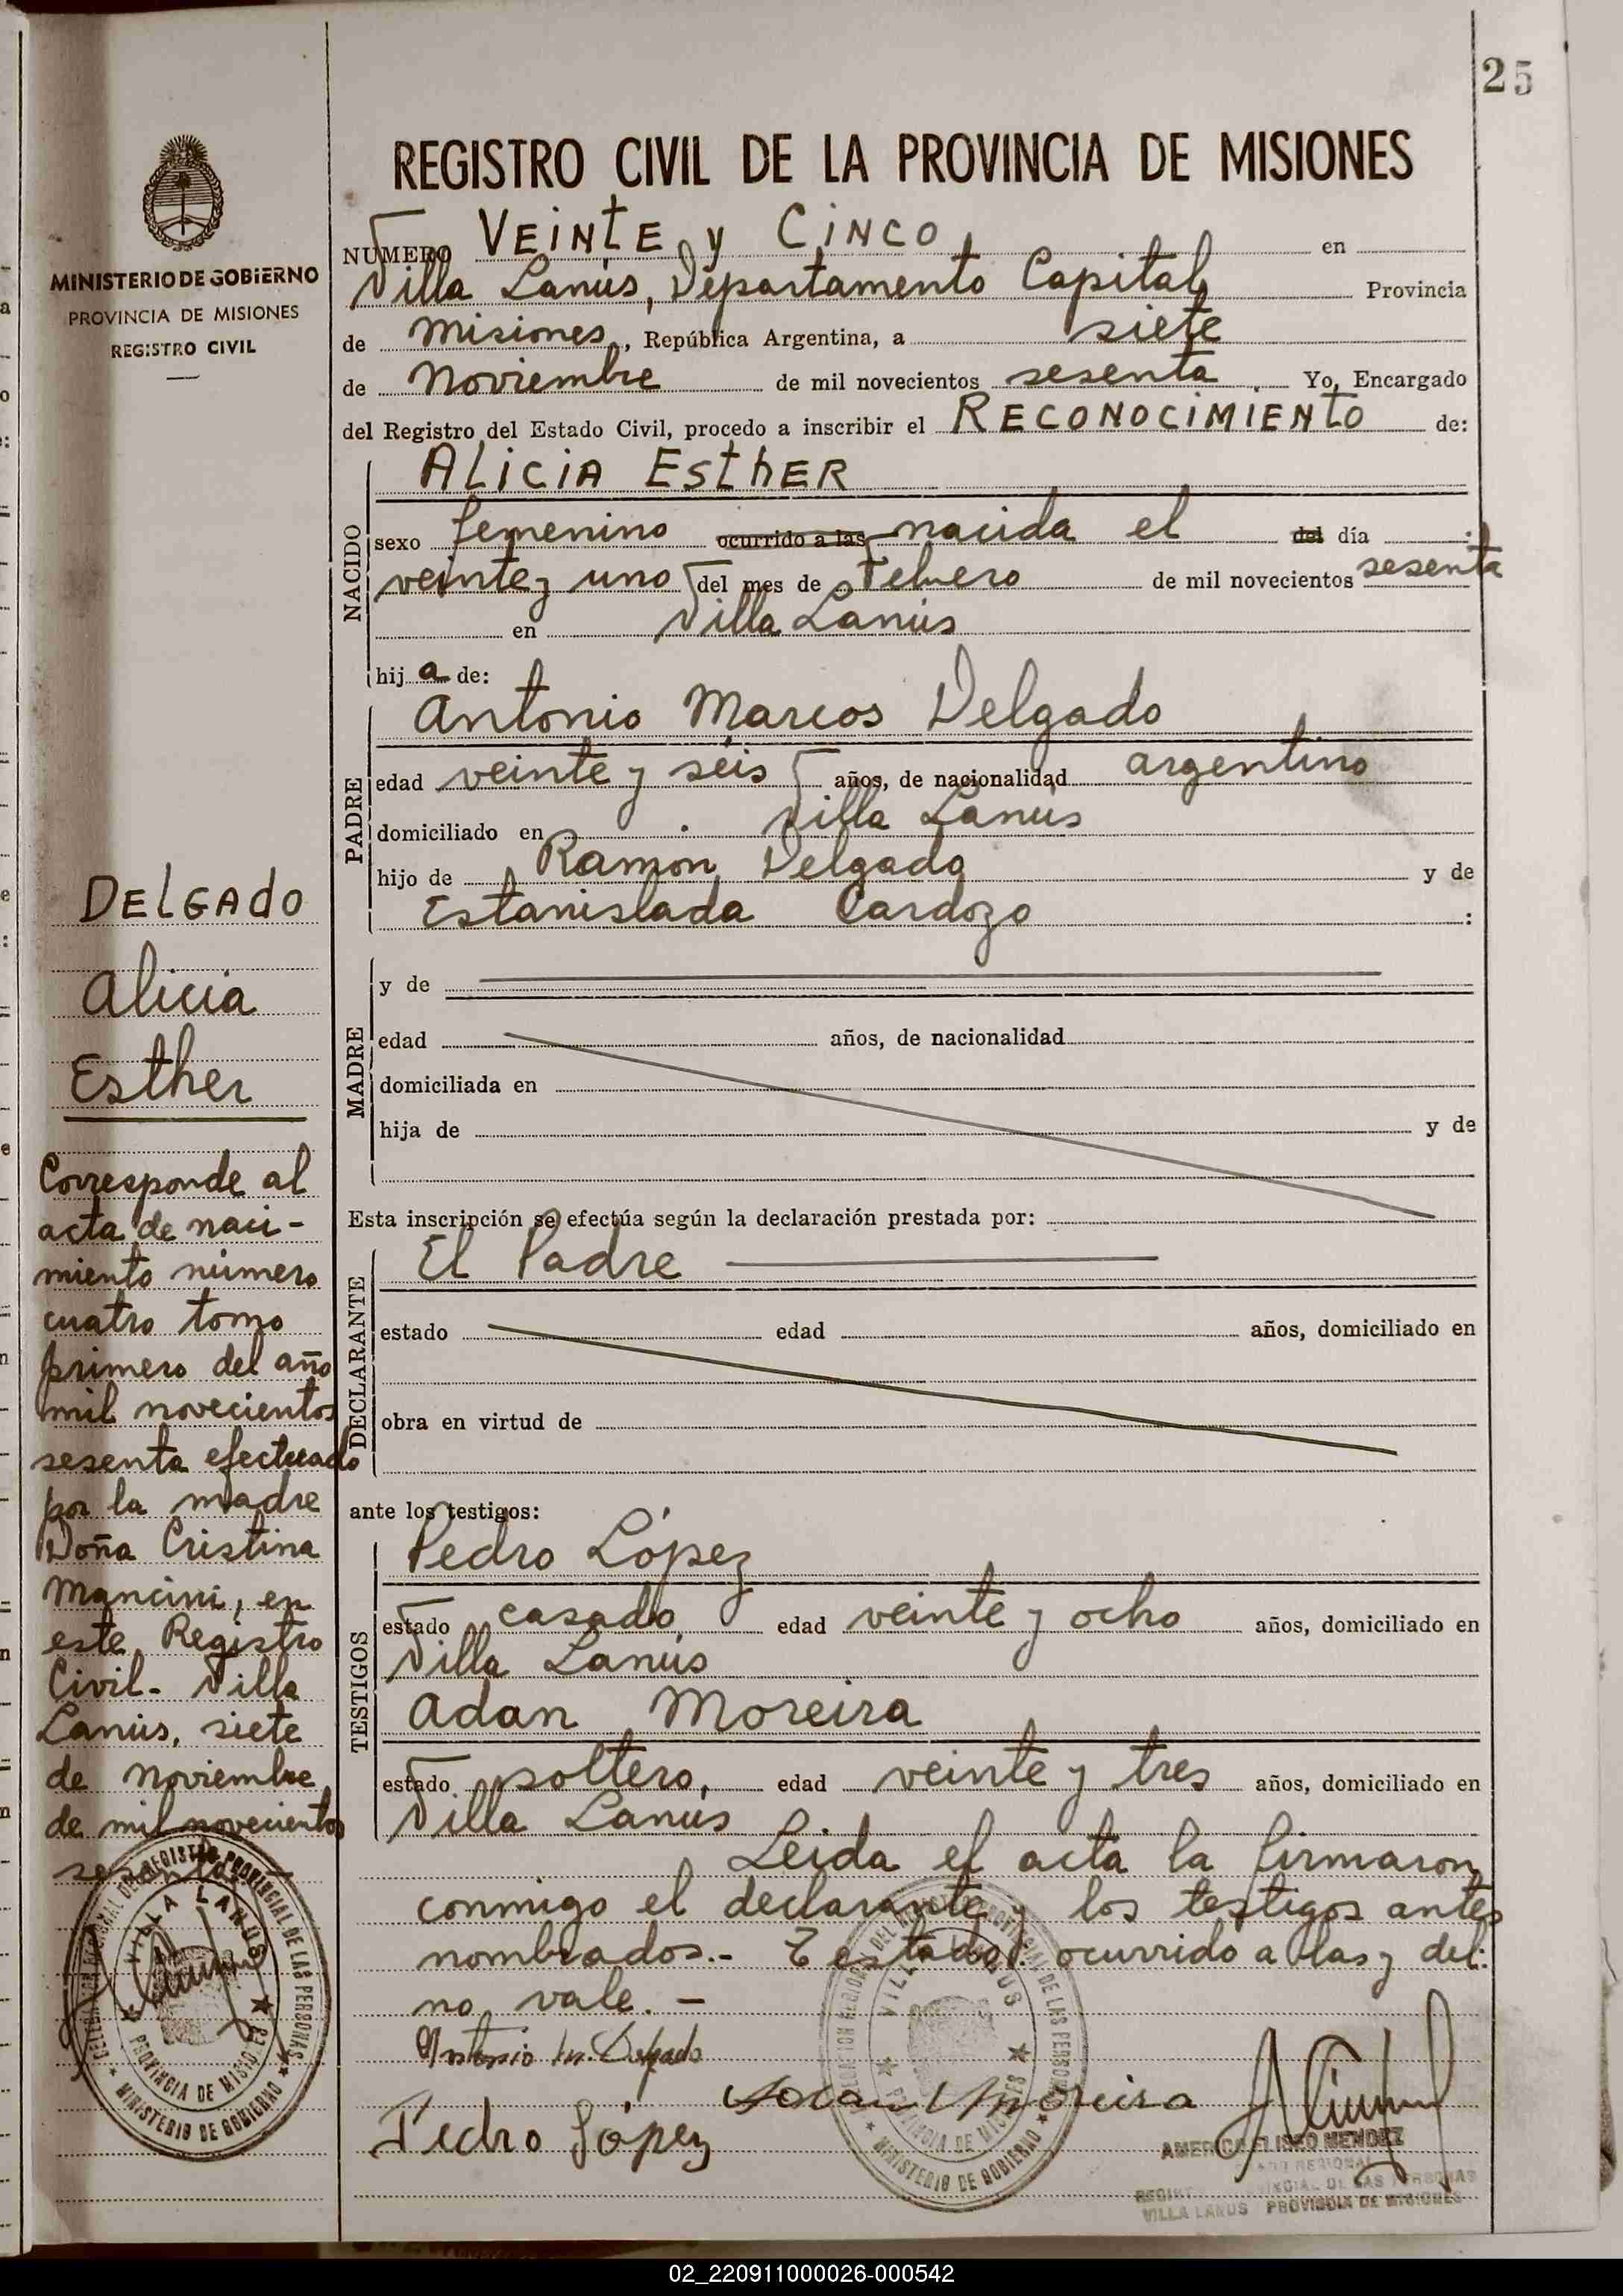 25
REGISTRO CIVIL DE LA PROVINCIA DE MISIONES
MINISTERIO DE GOBIERNO
PROVINCIA DE MISIONES
REGISTRO CIVIL
NUMERO VEINTE y CINCO en
Villa Lanús, Departamento Capital Provincia
de Misiones, República Argentina, a siete
de Noviembre de mil novecientos sesenta Yo, Encargado
del Registro del Estado Civil, procedo a inscribir el RECONOCIMIENTO de:
NACIDO
ALICIA ESTHER
sexo femenino ocurrido a las nacida el del día
veinte y uno del mes de Febrero de mil novecientos sesenta
en Villa Lanús
hija de:
PADRE
Antonio Marcos Delgado
edad veinte y séis años, de nacionalidad argentino
domiciliado en Villa Lanús
hijo de Ramón Delgado y de
Estanislada Cardozo :
MADRE
y de
edad años, de nacionalidad
domiciliada en
hija de y de
Esta inscripción se efectúa según la declaración prestada por:
DECLARANTE
El Padre
estado edad años, domiciliado en
obra en virtud de
ante los testigos:
TESTIGOS
Pedro López
estado casado, edad veinte y ocho años, domiciliado en
Villa Lanús
Adan Moreira
estado soltero, edad veinte y tres años, domiciliado en
Villa Lanús
Leida el acta la firmaron
conmigo el declarante y los testigos antes
nombrados.- Testado: ocurrido a las y del:
no vale. -
Antonio M. Delgado
Adan Moreira
Pedro López
AMERICO ELISEO MENDEZ
VILLA LANUS PROVINCIA DE MISIONES
DELGADO
Alicia
Esther
Corresponde al
acta de naci-
miento número
cuatro tomo
primero del año
mil novecientos
sesenta efectuado
por la madre
Doña Cristina
Mancini, en
este Registro
Civil- Villa
Lanús, siete
de Noviembre
de mil novecientos
sesenta-
REGISTRO PROVINCIAL DE LAS PERSONAS
VILLA LANUS
PROVINCIA DE MISIONES
MINISTERIO DE GOBIERNO
VILLA LANUS
PROVINCIA DE MISIONES
MINISTERIO DE GOBIERNO
02_220911000026-000542